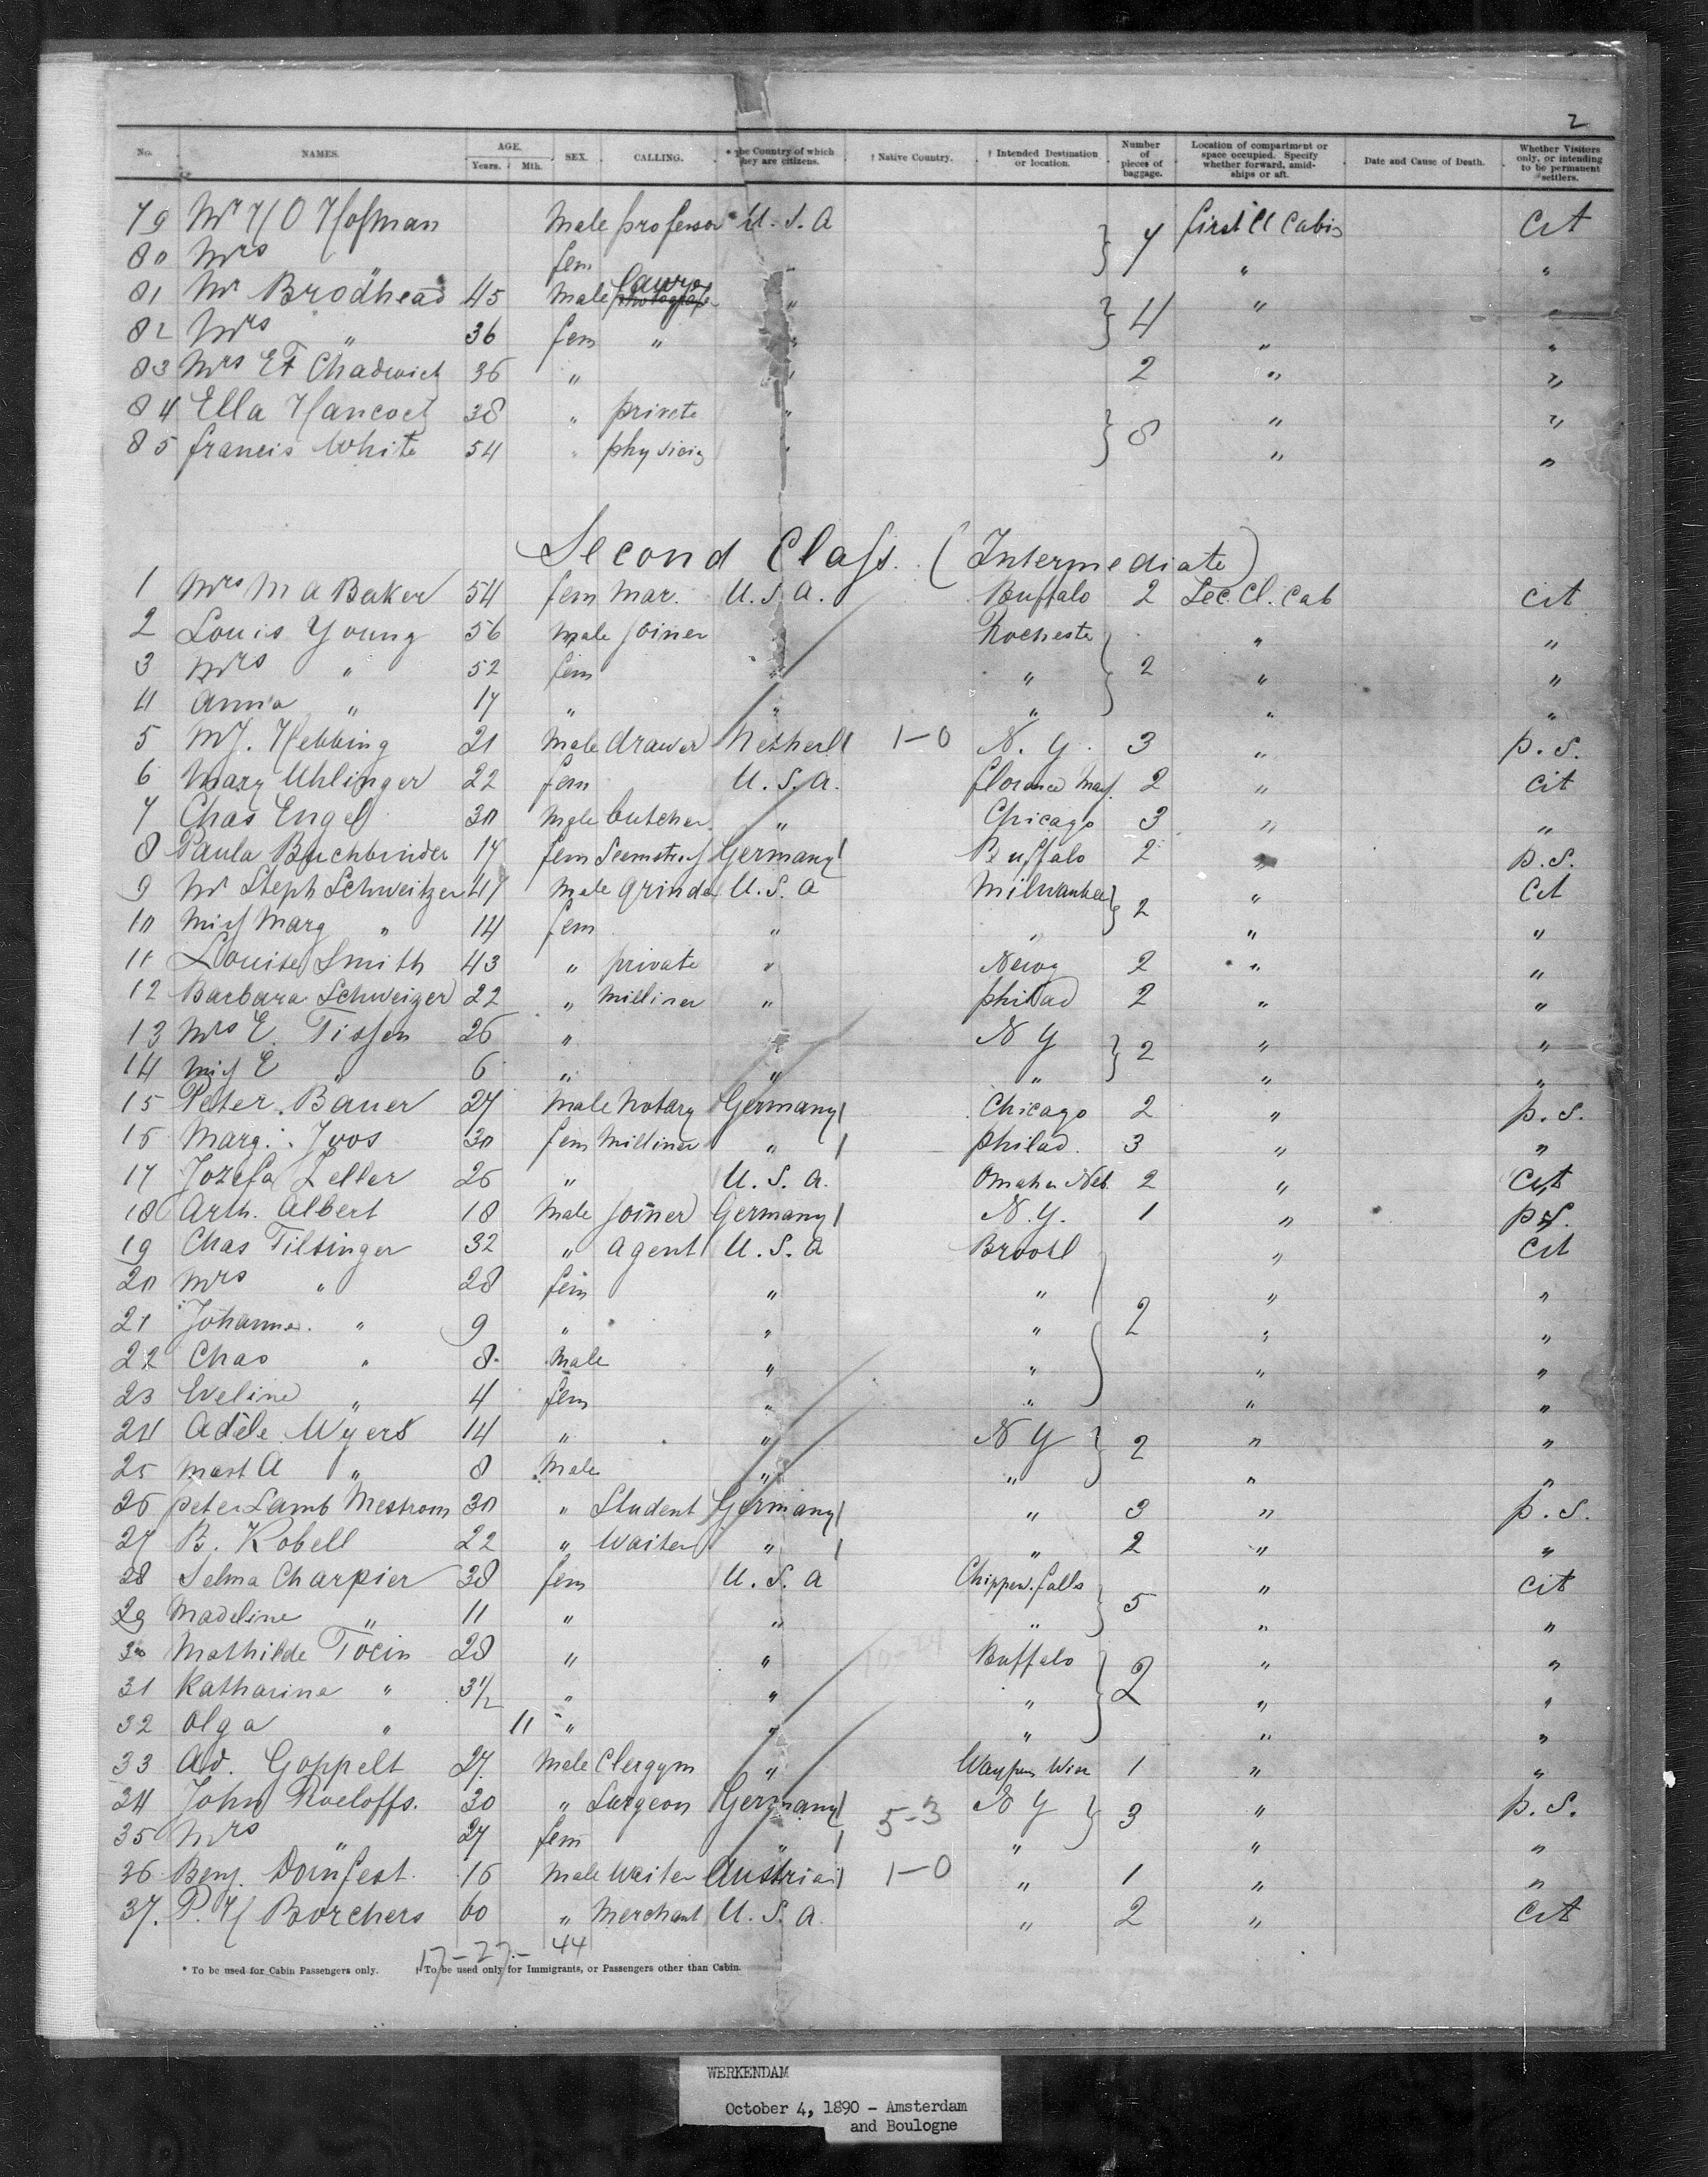 2
No. NAMES. AGE. Years. Mth. SEX. CALLING. * The Country of which they are citizens. † Native Country. † Intended Destination or location. Number of pieces of baggage. Location of compartment or space occupied. Specify whether forward, amidships or aft. Date and Cause of Death. Whether Visitors only, or intending to be permanent settlers.
79 Mr H O Hofman Male professor U.S.A 7 first Cl Cabin Cit
80 Mrs fem " "
81 Mr Brodhead 45 Male " 4 " "
82 Mrs " 36 fem " " " "
83 Mrs E F Chadwick 36 " " 2 " "
84 Ella Hancock 38 " private " 8 " "
85 francis White 54 " " " "
Second Class. (Intermediate)
1 Mrs M A Baker 54 fem mar. U.S.A. Buffalo 2 Sec. Cl. Cab cit
2 Louis Young 56 male joiner Rocheste 2 " "
3 Mrs " 52 fem " " " "
4 Anna " 17 " " " " "
5 MJ. Hebbing 21 Male drawer Netherl 1-0 N.Y. 3 " p.s.
6 Mary Uhlinger 22 fem U.S.A. florence Mass. 2 " cit
7 Chas Engel 30 Male butcher " Chicago 3 " "
8 Paula Buchbinder 17 fem Germany Buffalo 2 " p.s.
9 Mr Steph Schweitzer 47 Male grinder U.S.A Milwaukee 2 " Cit
10 Miss Marg " 14 fem " " " "
11 Louise Smith 43 " private " 2 " "
12 Barbara Schweizer 22 " Milliner " philad 2 " "
13 Mrs E. Tissen 26 " N Y 2 " "
14 Miss E " 6 " " " " "
15 Peter Bauer 27 Male Notary Germany Chicago 2 " p.s.
16 Marg. Joos 30 fem Milliner " philad. 3 " "
17 Jozefa Zeller 26 " U.S.A. Omaha Neb. 2 " Cit
18 Arth. Albert 18 Male joiner Germany N.Y. 1 " p.s.
19 Chas Tiltinger 32 " Agent U.S.A Brookl 2 " Cit
20 Mrs " 28 fem " " " "
21 Johanna " 9 " " " " "
22 Chas " 8 Male " " " "
23 Eveline " 4 fem " " " "
24 Adèle Wyers 14 " " N Y 2 " "
25 Mast A " 8 Male " " " "
26 peter Lamb Mestrom 30 " Student Germany " 3 " p.s.
27 B. Kobell 22 " Waiter " " 2 " "
28 Selma Charpier 38 fem U.S.A Chippew. falls 5 " cit
29 Madeline " 11 " " " " "
30 Mathilde 28 " " Buffalo 2 " "
31 Katharine " 3½ " " " " "
32 Olga " 11 " " " " "
33 Ad. Goppelt 27. Male Clergym " 1 " "
34 John Roeloffs. 30 " Surgeon Germany 5-3 N Y 3 " p.s.
35 Mrs " 27 fem " " " "
36 Benj. Dornfest 16 Male Waiter Austria 1-0 " 1 " "
37. P. H Borchers 60 " Merchant U.S.A. " 2 " Cit
17-27- 44
* To be used for Cabin Passengers only. † To be used only for Immigrants, or Passengers other than Cabin.
WERKENDAM
October 4, 1890 - Amsterdam
and Boulogne